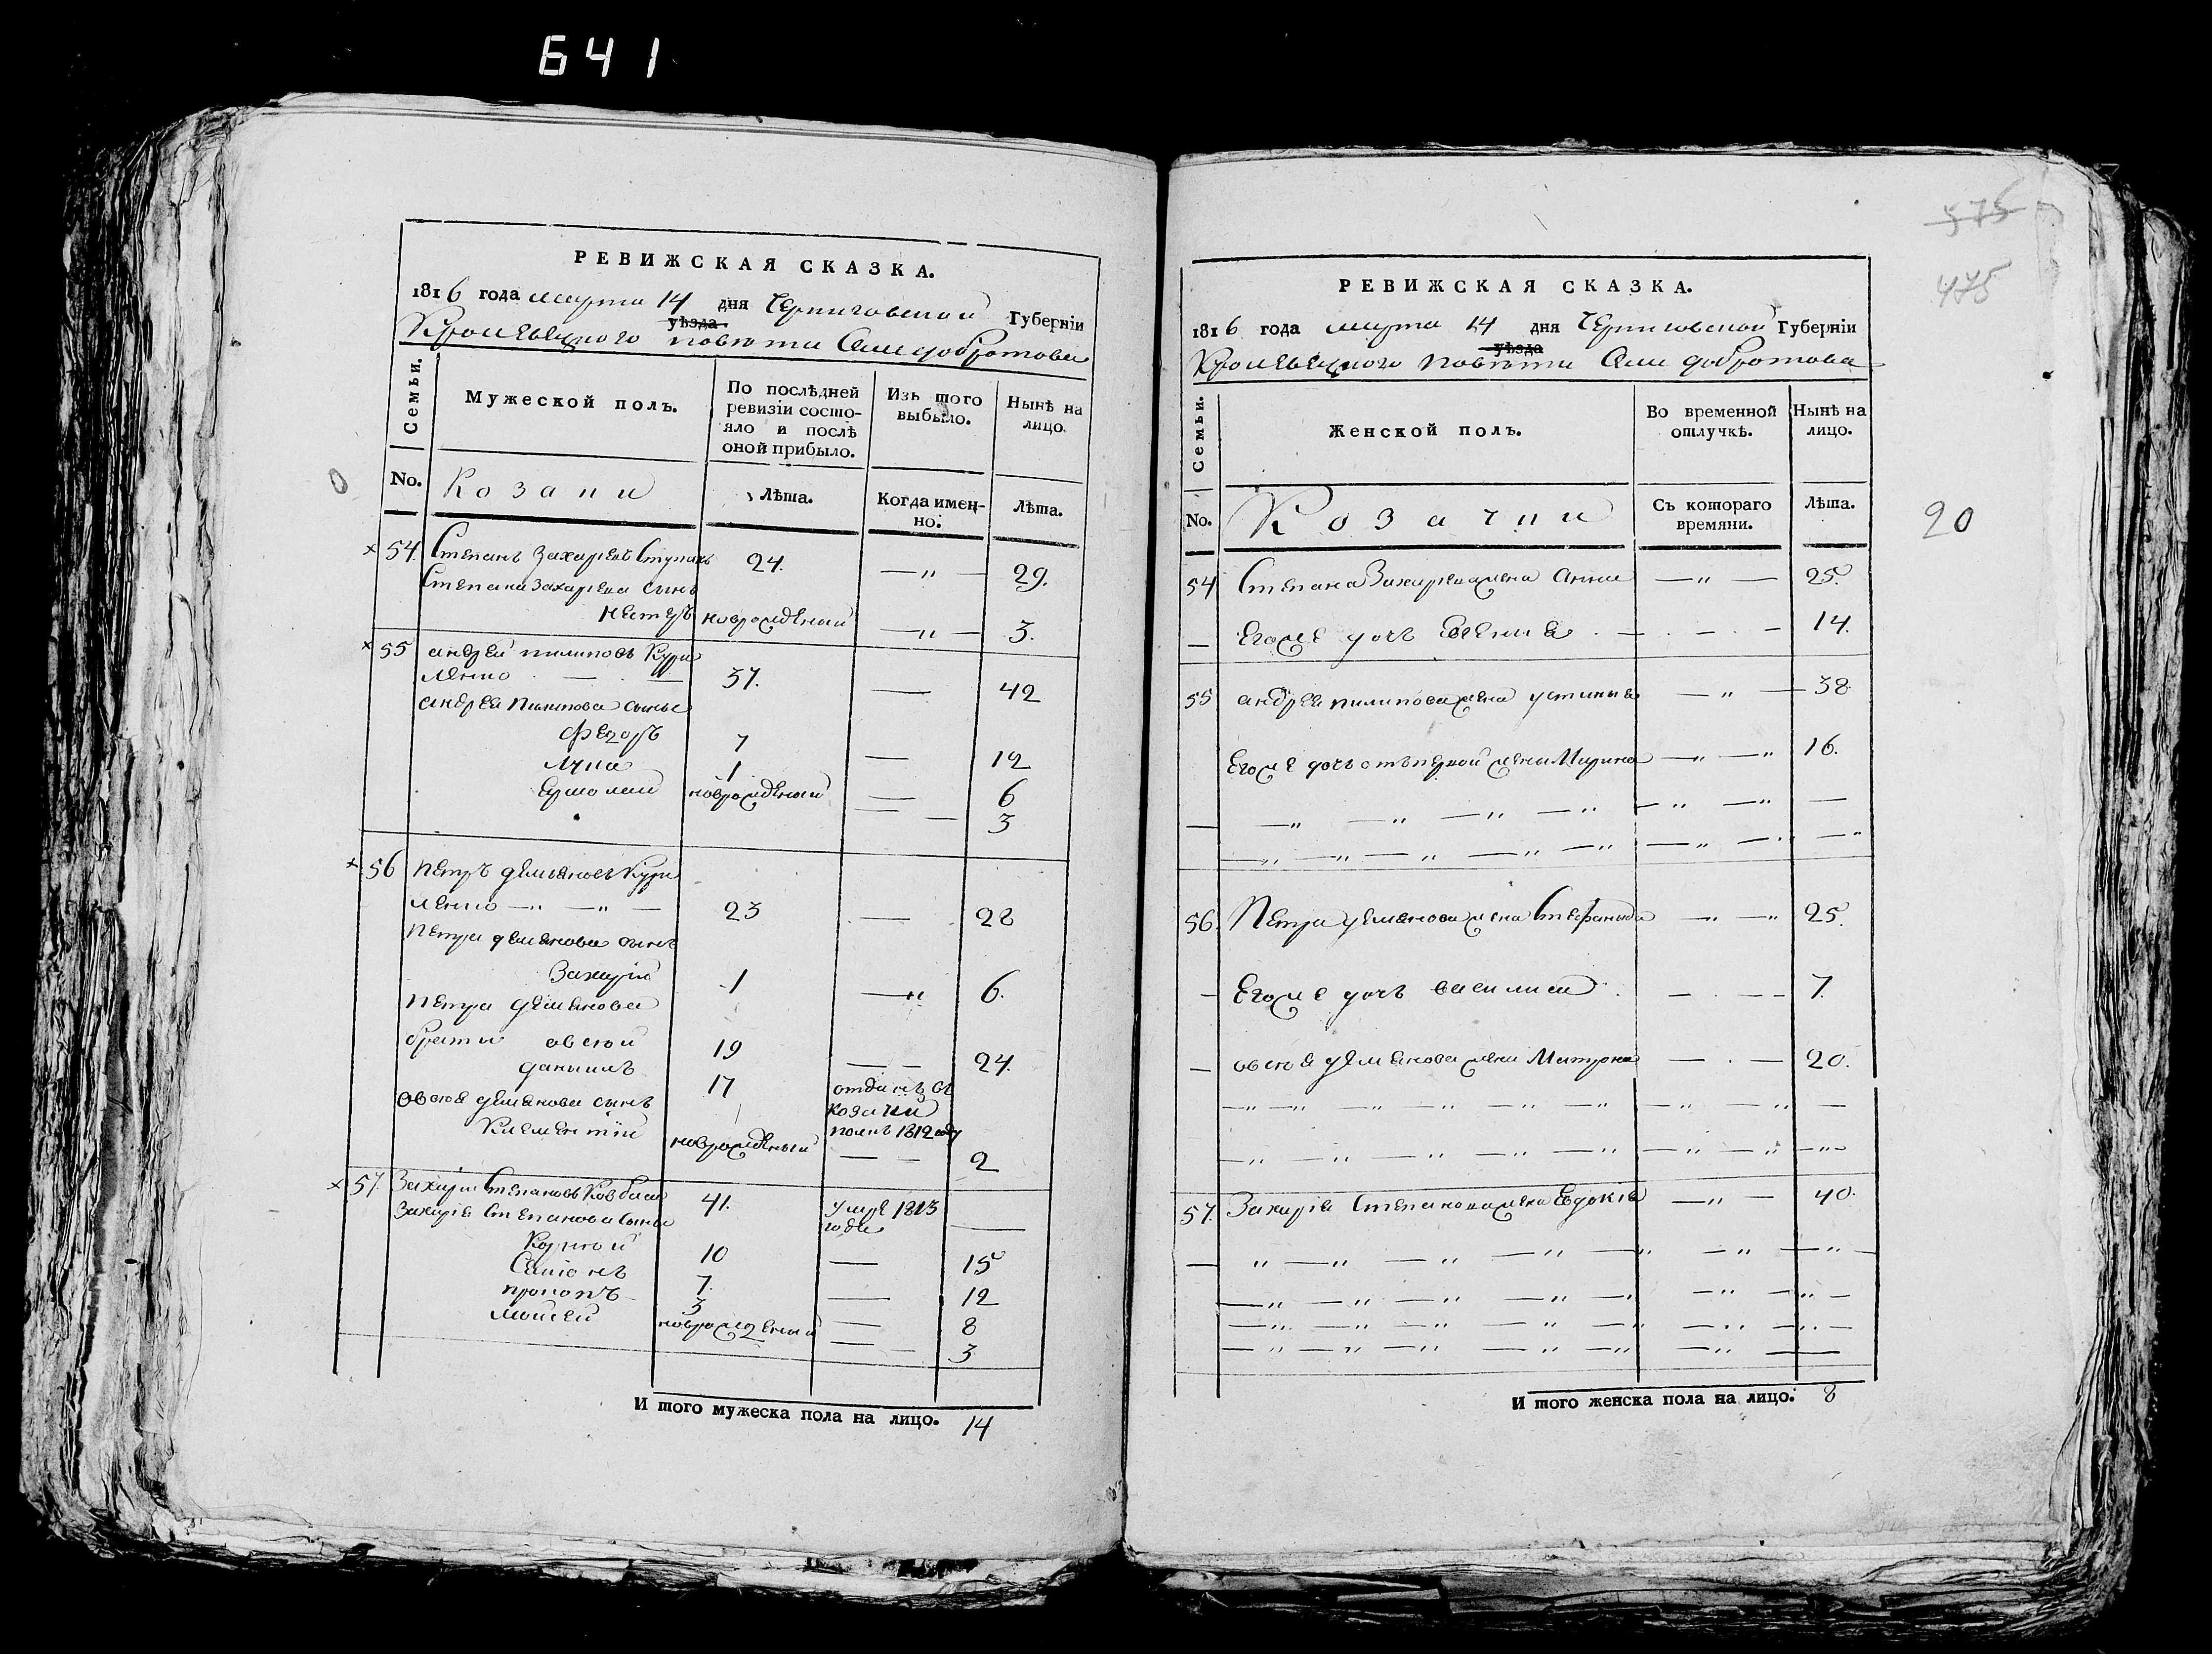 641
РЕВИЖСКАЯ СКАЗКА.
1816 года марта 14 дня Черниговской Губерніи
уѣзда
Кролевецкого повѣта Села добротова
Семьи.
Мужеской полъ.
По послѣдней ревизіи состояло и послѣ оной прибыло.
Изъ того выбыло.
Нынѣ на лицо.
No.
Козаки
Лѣта.
Когда именно.
Лѣта.
54. Степанъ Захарьевъ 24. —"— 29.
Степана Захарьева сынъ
Нестеръ новрожденный —"— 3.
55 андрей пилиповъ Кури
ленко 37. — 42
андрея пилипова сынье
Федоръ 7 — 12
Лука 1 — 6
Ермолай новрожденный — 3
56 Петръ демяновъ Кури
ленко —"—"— 23 — 28
Петра демянова сынъ
Захарій 1 —"— 6.
Петра демянова
братья овсей 19 — 24.
данило 17 отданъ въ
козачій
полкъ 1812 году
овсея демянова сынъ
Климентій новрожденный — 2
57. Захарій Степановъ Ковбаса 41. умре 1813
года —
Захарія Степанова сынье
Корней 10 — 15
Самсонъ 7. — 12
прокопъ 3 — 8
Мойсей новрожденный — 3
И того мужеска пола на лицо. 14
575
475
РЕВИЖСКАЯ СКАЗКА.
1816 года марта 14 дня Черниговской Губерніи
уѣзда
Кролевецкого повѣта Села добротова
Семьи.
Женской полъ.
Во временной отлучкѣ.
Нынѣ на лицо.
No.
Козачки
Съ котораго времяни.
Лѣта.
20
54 Степана Захарьева жена Анна —"— 25
— Егоже дочь Евгения — 14.
55 андрея пилипова жена устинья —"— 38
Егоже дочь отъ первой жены Марина —"—" 16.
56. Петра демянова жена Стефанида —"—" 25.
— Егоже дочь василиса — 7.
— овсея демянова жена Матрона — 20.
57. Захарія Степанова жена Евдокія —"— 40.
И того женска пола на лицо. 8